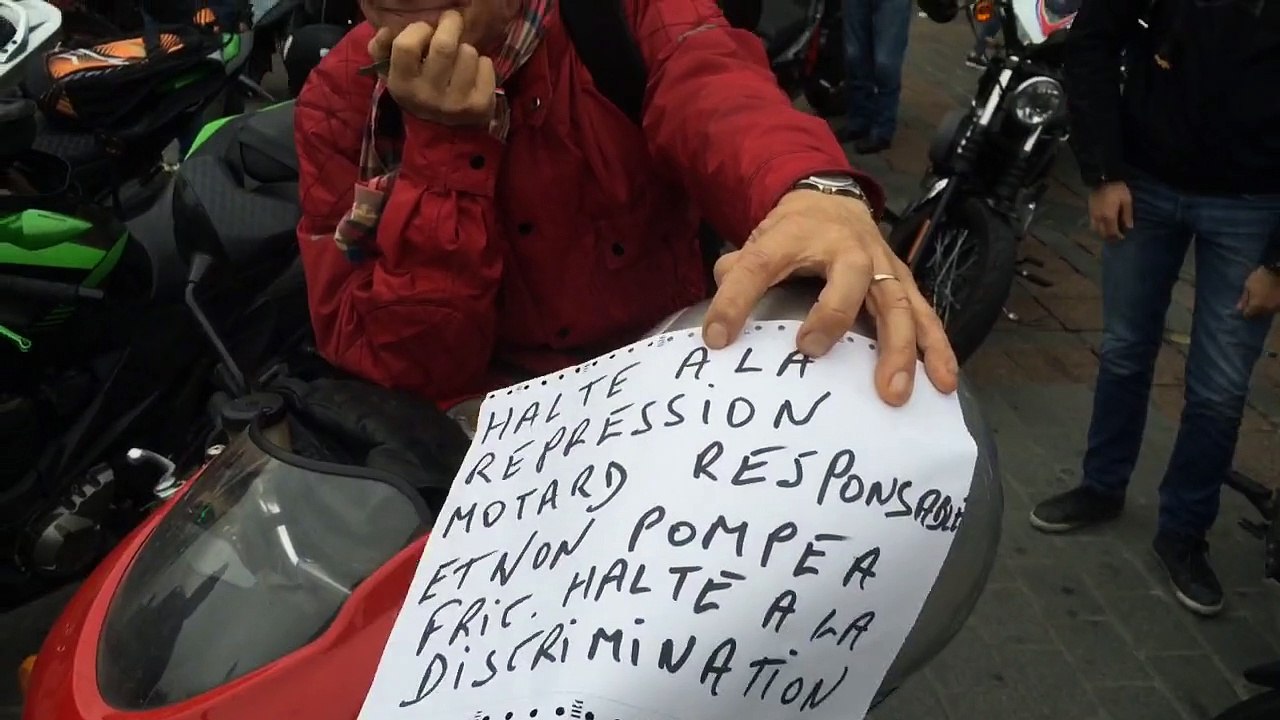 HALTE A LA
REPRESSiON
MOTARD RESPONSABLE
ET NON POMPE A
FRiC. HALTE A LA
DISCRiMiNATiON